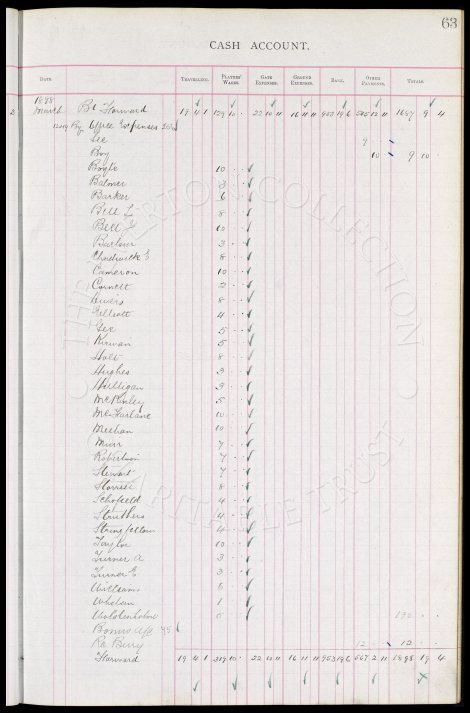 63
CASH ACCOUNT.
DATE. TRAVELLING. PLAYERS' WAGES. GATE EXPENSES. GROUND EXPENSES. BANK. OTHER PAYMENTS. TOTALS.
1898
March Bt Forward 19 4 1 129 10 22 10 11 16 11 11 953 19 6 12 11 1697 9 4
By Office Expenses
Sec 9
Boy 10 9 10
Boyle 10
Balmer 3
Barker 6
Bell L 8
Bell J 10
Barlow 3
Chadwick E 8
Cameron 10
Cornett 2
Divers 8
Elliott 4
Gee 5
Kirwan 5
Holt 8
Hughes 3
Hulligan 3
McKinley 5
McFarlane 10
Meehan 10
Muir 7
Robertson 7
Stewart 7
Storrier 8
Schofield 4
Struthers 4
Stringfellow 4
Taylor 10
Turner A 3
Turner E 3
Williams 6
Whelan 1
Wolstenholme 5
Bonus A/c
Re Berry 12 12
Forward 19 4 1 319 10 22 10 11 16 11 11 953 19 6 567 2 11 1898 19 4
THE EVERTON COLLECTION CHARITABLE TRUST